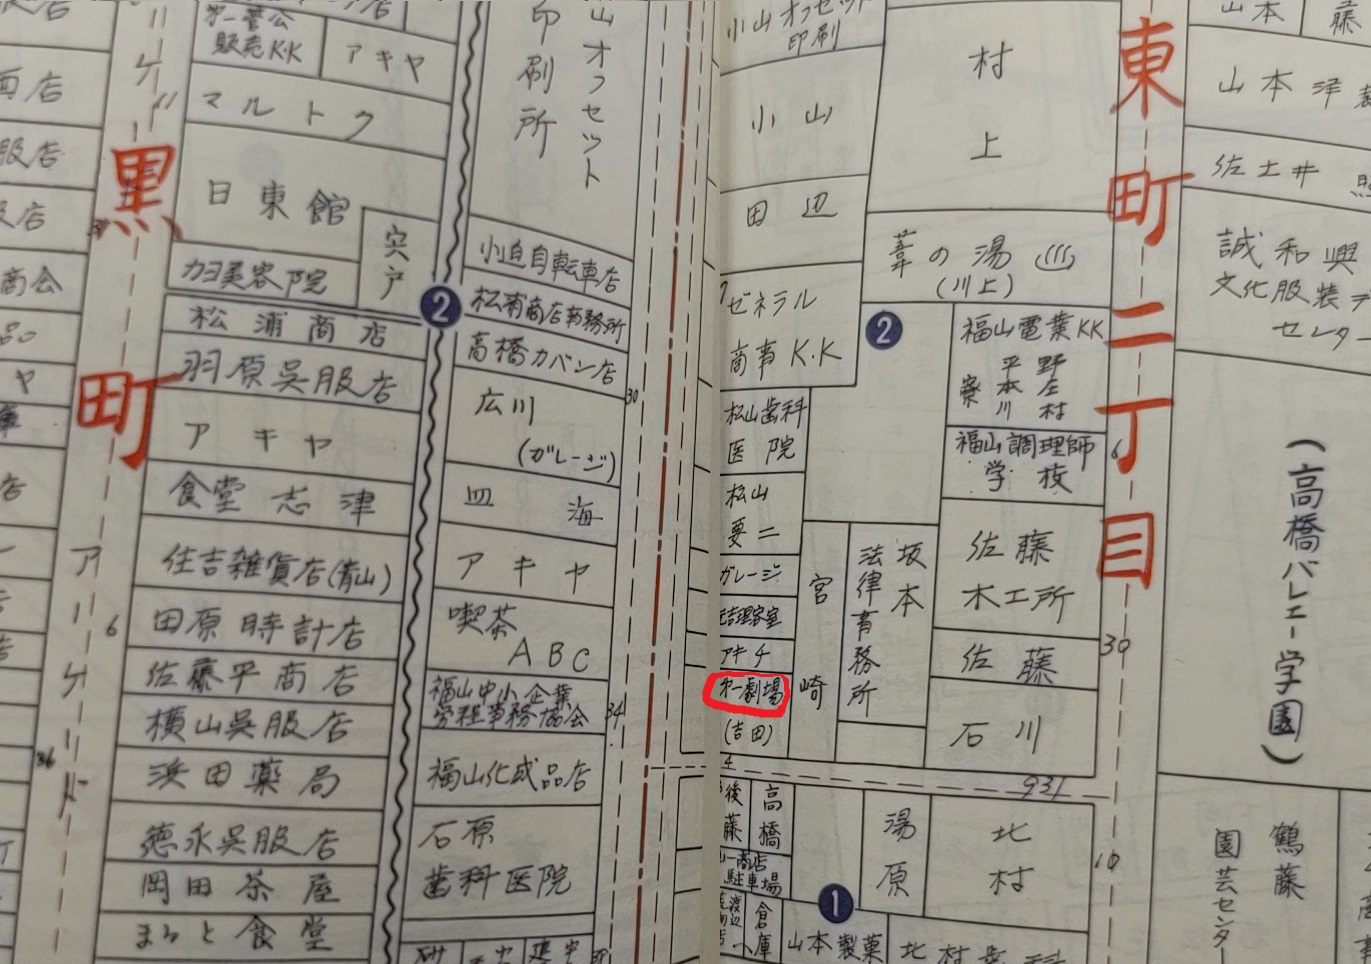 第一菅公
販売K.K
アキヤ
マルトク
日東館
宍戸
カヨ美容院
松浦商店
羽原呉服店
アキヤ
食堂志津
住吉雑貨店(青山)
田原時計店
佐藤平商店
横山呉服店
浜田薬局
徳永呉服店
岡田茶屋
食堂
黒町
アーケード
6
36
山オフセット
印刷所
小迫自転車店
松浦商店事務所
高橋カバン店
広川
(ガレージ)
皿海
アキヤ
喫茶
ABC
福山中小企業
労務事務協会
福山化成品店
石原
歯科医院
2
30
34
小山オフセット
印刷
小山
田辺
ゼネラル
商事K.K
松山歯科
医院
松山
要二
ガレージ
アキチ
第一劇場
(吉田)
4
村上
葦の湯
(川上)
2
福山電業KK
平野
本庄
川村
寮
福山調理師
学校
佐藤
木工所
佐藤
石川
宮崎
坂本
法律事務所
931
後藤
高橋
商店
駐車場
渡辺
倉庫
湯原
北村
1
山本製菓
北村歯科
東町二丁目
6
30
10
山本
藤
山本洋
佐土井
誠和興
文化服装
センター
(高橋バレエー学園)
鶴藤
園芸センター
面店
服店
店
商会
ヤ
店